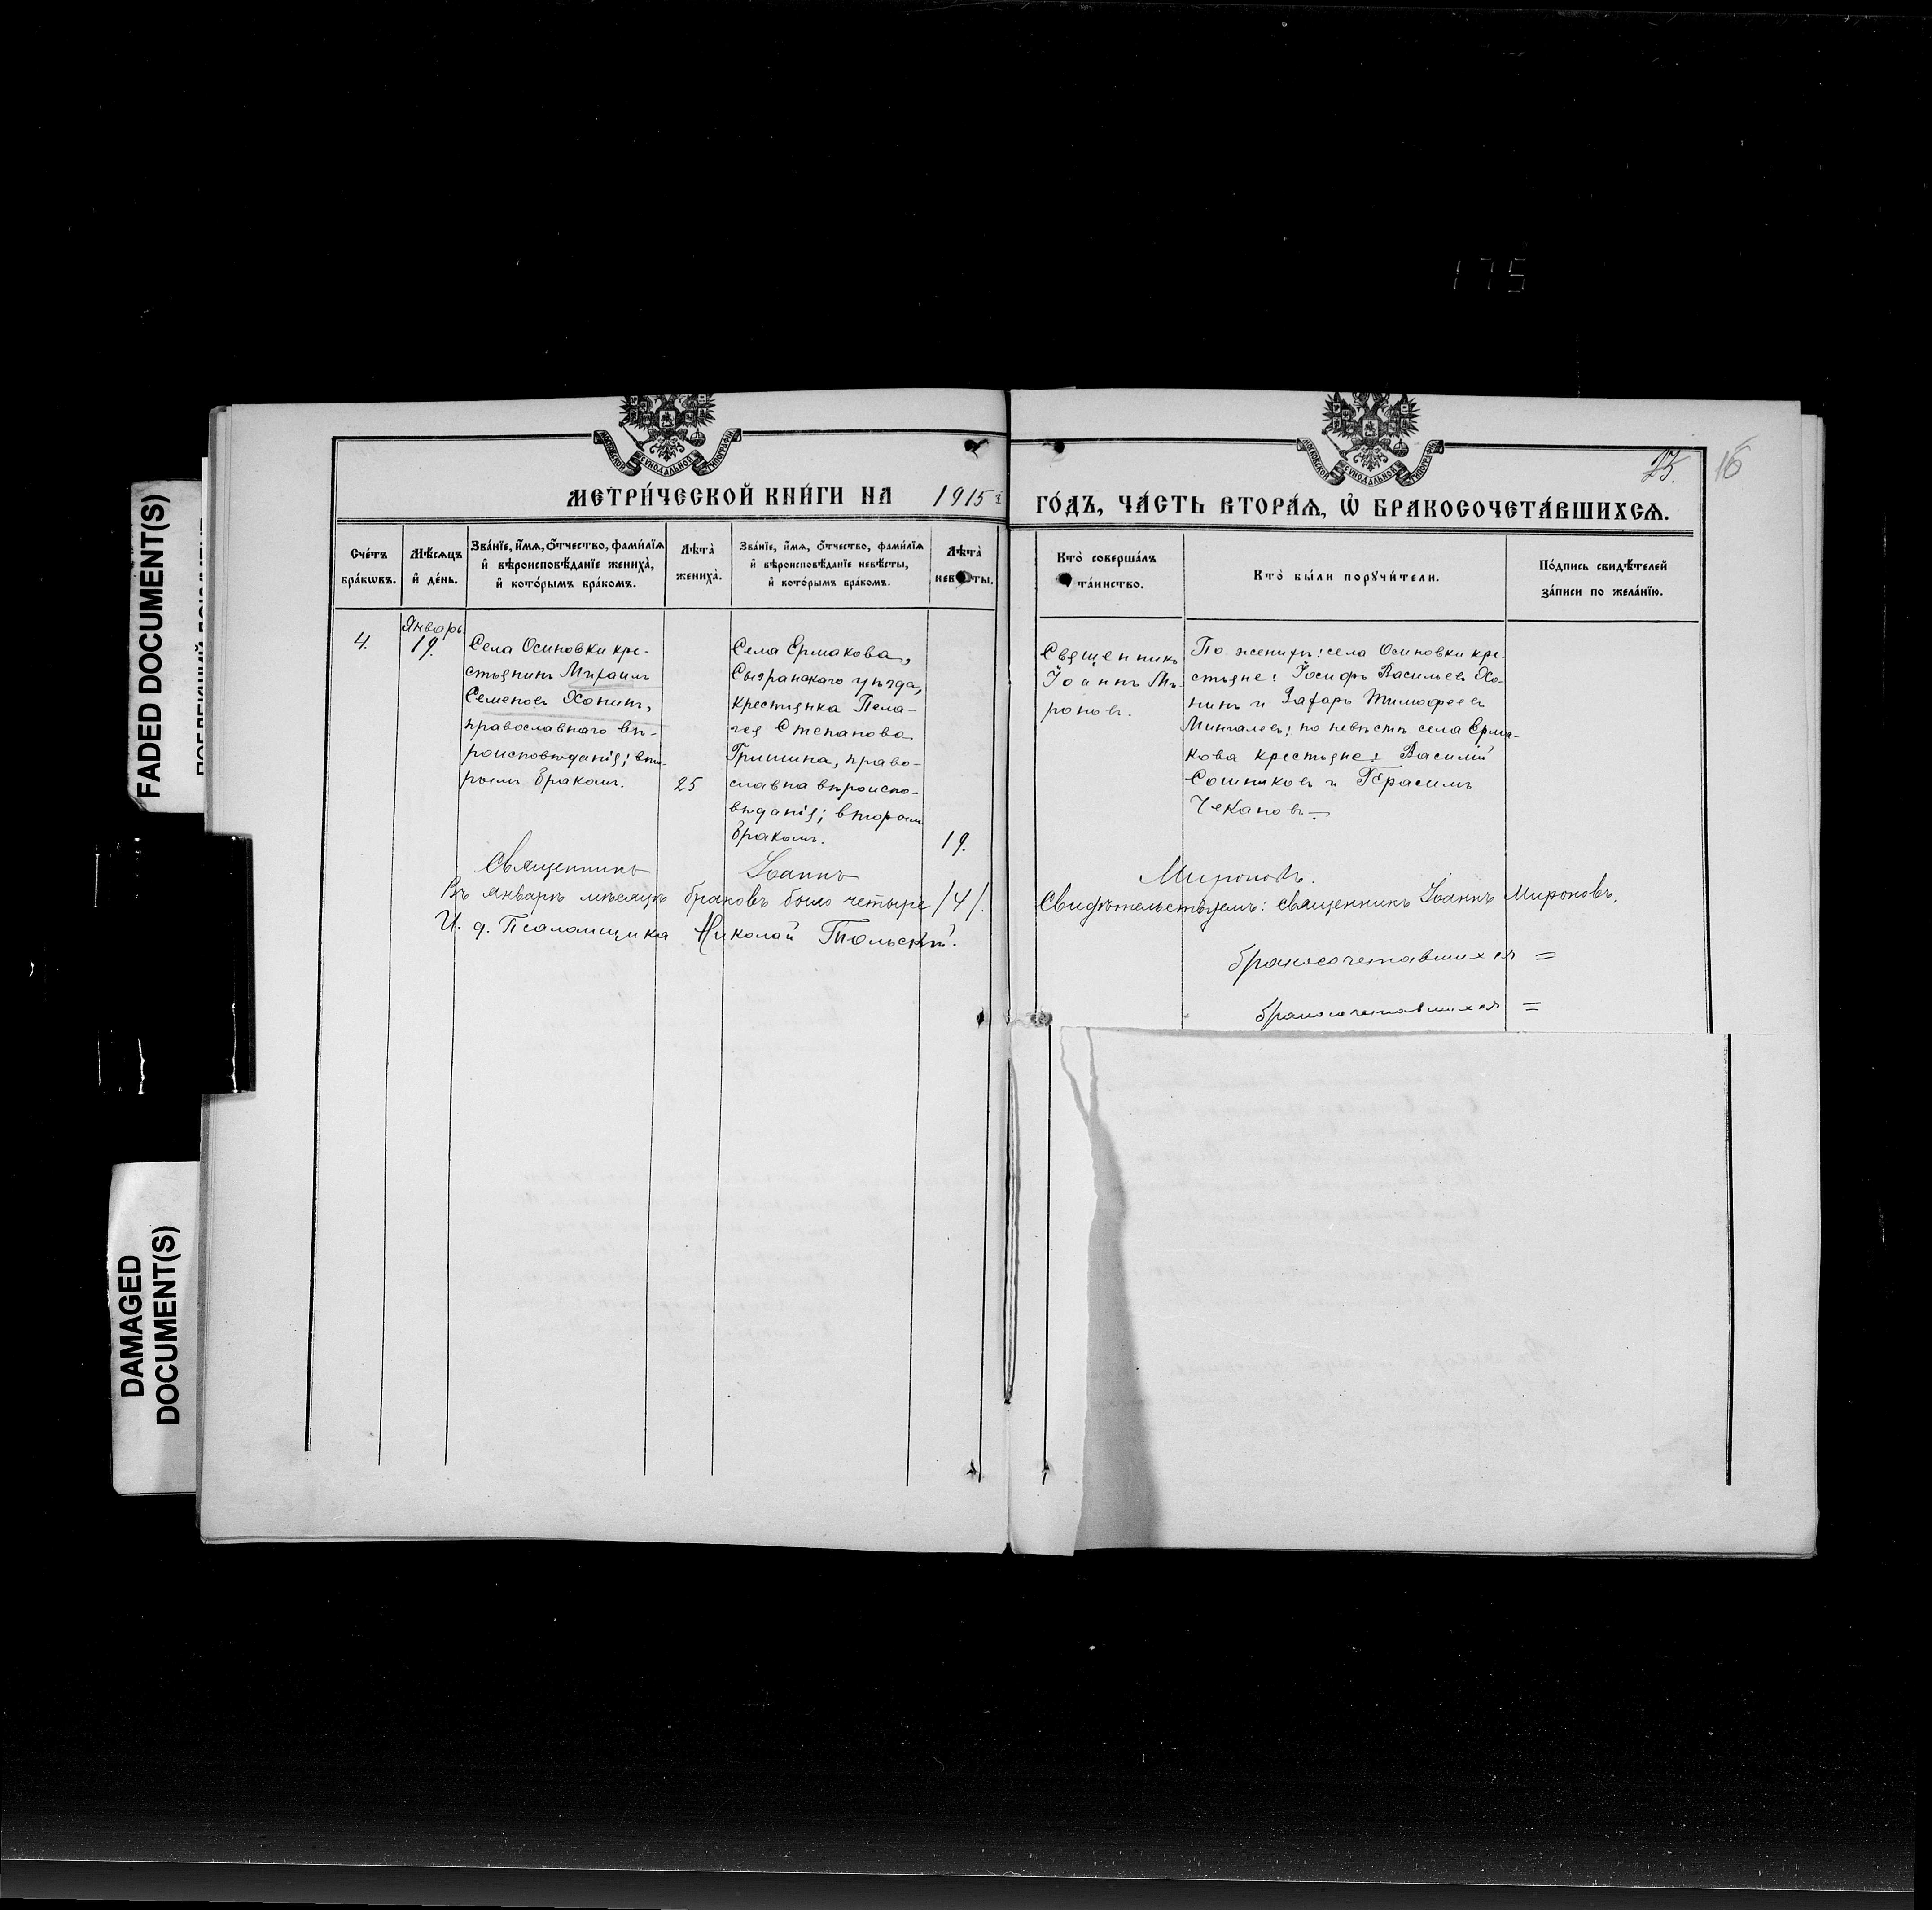 175
FADED DOCUMENT(S)
DAMAGED
DOCUMENT(S)
МОСКОВСКОЙ СУНОДАЛЬНОЙ ТИПОГРАФІИ
МОСКОВСКОЙ СУНОДАЛЬНОЙ ТИПОГРАФІИ
25. 16
МЕТРИ́ЧЕСКОЙ КНИ́ГИ НА 1915й
ГО́ДЪ, ЧА́СТЬ ВТОРА́Ѧ, Ѽ БРАКОСОЧЕТА́ВШИХСѦ.
Сче́тъ
бра́кѡвъ.
Мѣ́сѧцъ
и҆ де́нь.
Зва́нїе, и҆́мѧ, о҆́тчество, фами́лїѧ
и҆ вѣроисповѣ́данїе жениха̀,
и҆ кото́рымъ бра́комъ.
Лѣта̀
жениха̀.
Зва́нїе, и҆́мѧ, о҆́тчество, фами́лїѧ
и҆ вѣроисповѣ́данїе невѣ́сты,
и҆ кото́рымъ бра́комъ.
Лѣта̀
нев ты.
Кто̀ соверша́лъ
та́инство.
Кто̀ бы́ли порꙋчи́тели.
По́дпись свидѣ́телей
за́писи по жела́нїю.
4.
Январь.
19.
Села Осиновки кре-
стьянинъ Михаилъ
Семеновъ Хонинъ,
православнаго вѣ-
роисповѣданія; вто-
рымъ бракомъ.
25
Села Ермакова,
Сызранскаго уѣзда,
крестьянка Пела-
гея Степанова
Гришина, право-
славна вѣроиспо-
вѣданія; вторым
бракомъ.
19.
Священникъ
Іоаннъ Ми-
роновъ.
По женихѣ: села Осиновки кре-
стьяне: Іосифъ Васильевъ Хо-
нинъ и Захаръ Тимофеевъ
Мингалевъ; по невѣстѣ села Ерма-
кова крестьяне: Василій
Сошниковъ и Герасимъ
Чекановъ.
Священникъ Іоаннъ Мироновъ.
Въ январѣ мѣсяцѣ браковъ было четыре /4/.
Свидѣтельствуемъ: священникъ Іоаннъ Мироновъ.
И. д. Псаломщика Николай Тольскій.
бракосочетавшихся =
бракосочетавшихся =